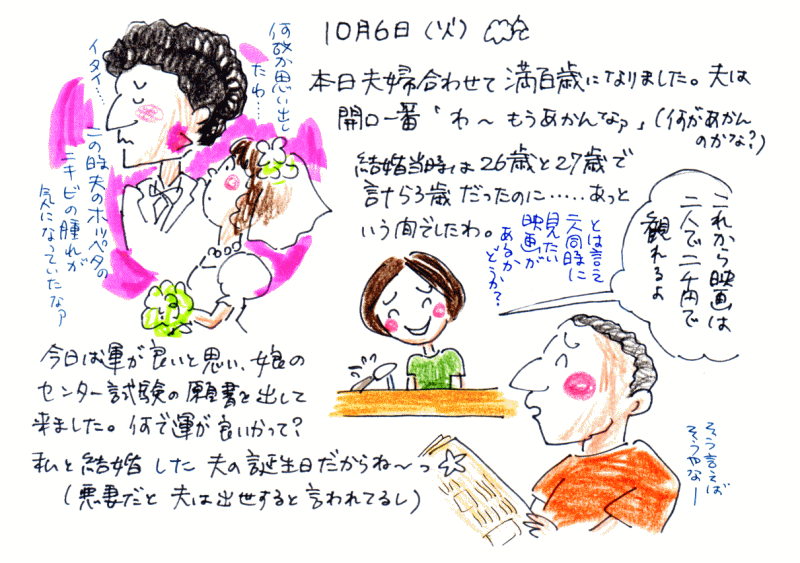 10月6日(火)
本日夫婦合わせて満百歳になりました。夫は
開口一番「わ〜もうあかんなァ」(何があかん
のかな?)
結婚当時は26歳と27歳で
計53歳だったのに……あっと
いう間でしたわ。
何故か思い出し
たわ…
イタイ…
この時夫のホッペタの
ニキビの腫れが
気になっていたなァ
これから映画は
二人で二千円で
観れるよ
とは言え
二人同時に
見たい
映画が
あるか
どうか?
今日は運が良いと思い、娘の
センター試験の願書を出して
来ました。何で運が良いかって?
私と結婚した夫の誕生日だからね〜っ☆
(悪妻だと夫は出世すると言われてるし)
そう言えば
そうやなー